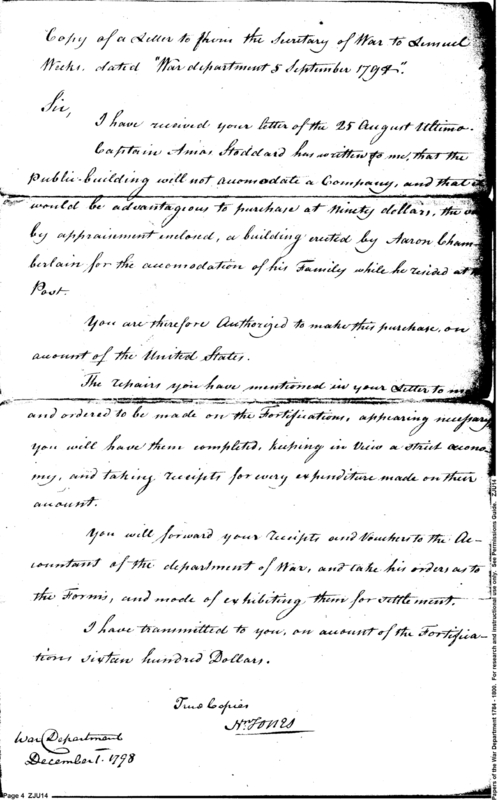 Copy of a Letter to from the Secretary of War to Lemuel
Weeks. dated "War department 5 September 1798".
Sir,
I have received your letter of the 25 August Ultimo.
Captain Amos Stoddard has written to me, that the
Public-building will not acomodate a Company, and that
would be advantageous to purchase at Ninety dollars, the
by apprainment enclosed, a building erected by Aaron Cham-
berlain for the accomodation of his Family while he resided at
Post.
You are therefore Authorized to make this purchase, on
account of the United States.
The repairs you have mentioned in your Letter to
and ordered to be made on the Fortifications, appearing necessary
you will have them completed, keeping in View a strict œcono-
my, and taking receipts for every expenditure made on their
account.
You will forward your receipts and Vouchers to the Ac-
countant of the department of War, and take his orders as to
the Forms, and mode of exhibiting them for settlement.
I have transmitted to you, on account of the Fortifica-
tions sixteen hundred Dollars.
True Copies
Wm Jones
War Department
December 1. 1798
Page 4 ZJU14
Papers of the War Department 1784 - 1800. For research and instructional use only. See Permissions Guide. ZJU14